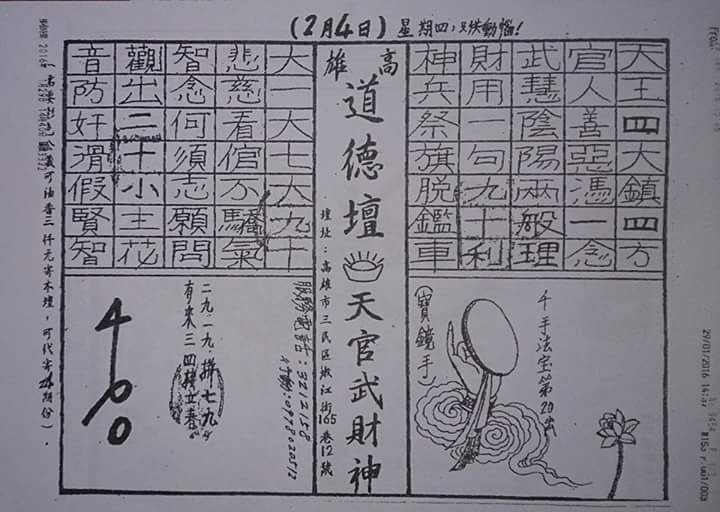 (2月4日) 星期四，
天王四大鎮四方
官人善惡憑一念
武慧陰陽兩般理
財用一句九十利
神兵祭旗脱鑑車
高雄
道德壇
天官武財神
壇址：高雄市三民區嫩江街165巷12號
大一大七大九十
悲慈看倌不驕氣
智念何須志願問
觀出二十小主花
音防奸滑假賢智
千手法宝第20出
(寶鏡手)
服務電話：3212158
行動：0978020512
二九一九．拼七九
有來三四接立春
400
金義可油香三仟元寄本壇，可代寄
29/01/2016 14:37